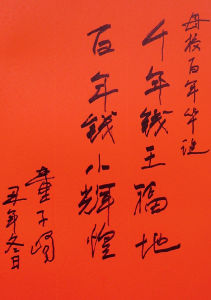 母校百年华诞
千年钱王福地
百年钱小辉煌
童子
丑年冬日